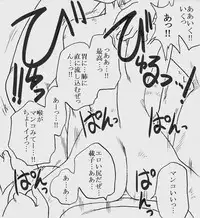 ああいく!!
いくっ
あっ!!
びゅるっっ
っああ…!
最高…っ
胃に…肺に
直に流し込むぜっ
ん…っ!!
びゅっ
ぱんっ
ぱんっ
あーっ…!
喉が
マンコみてー…!!
ちょーイイっ…!
エロい尻だぜ
載子…ああ…
あ…あ
マンコいいっ…
ぱんっ
ぱんっ